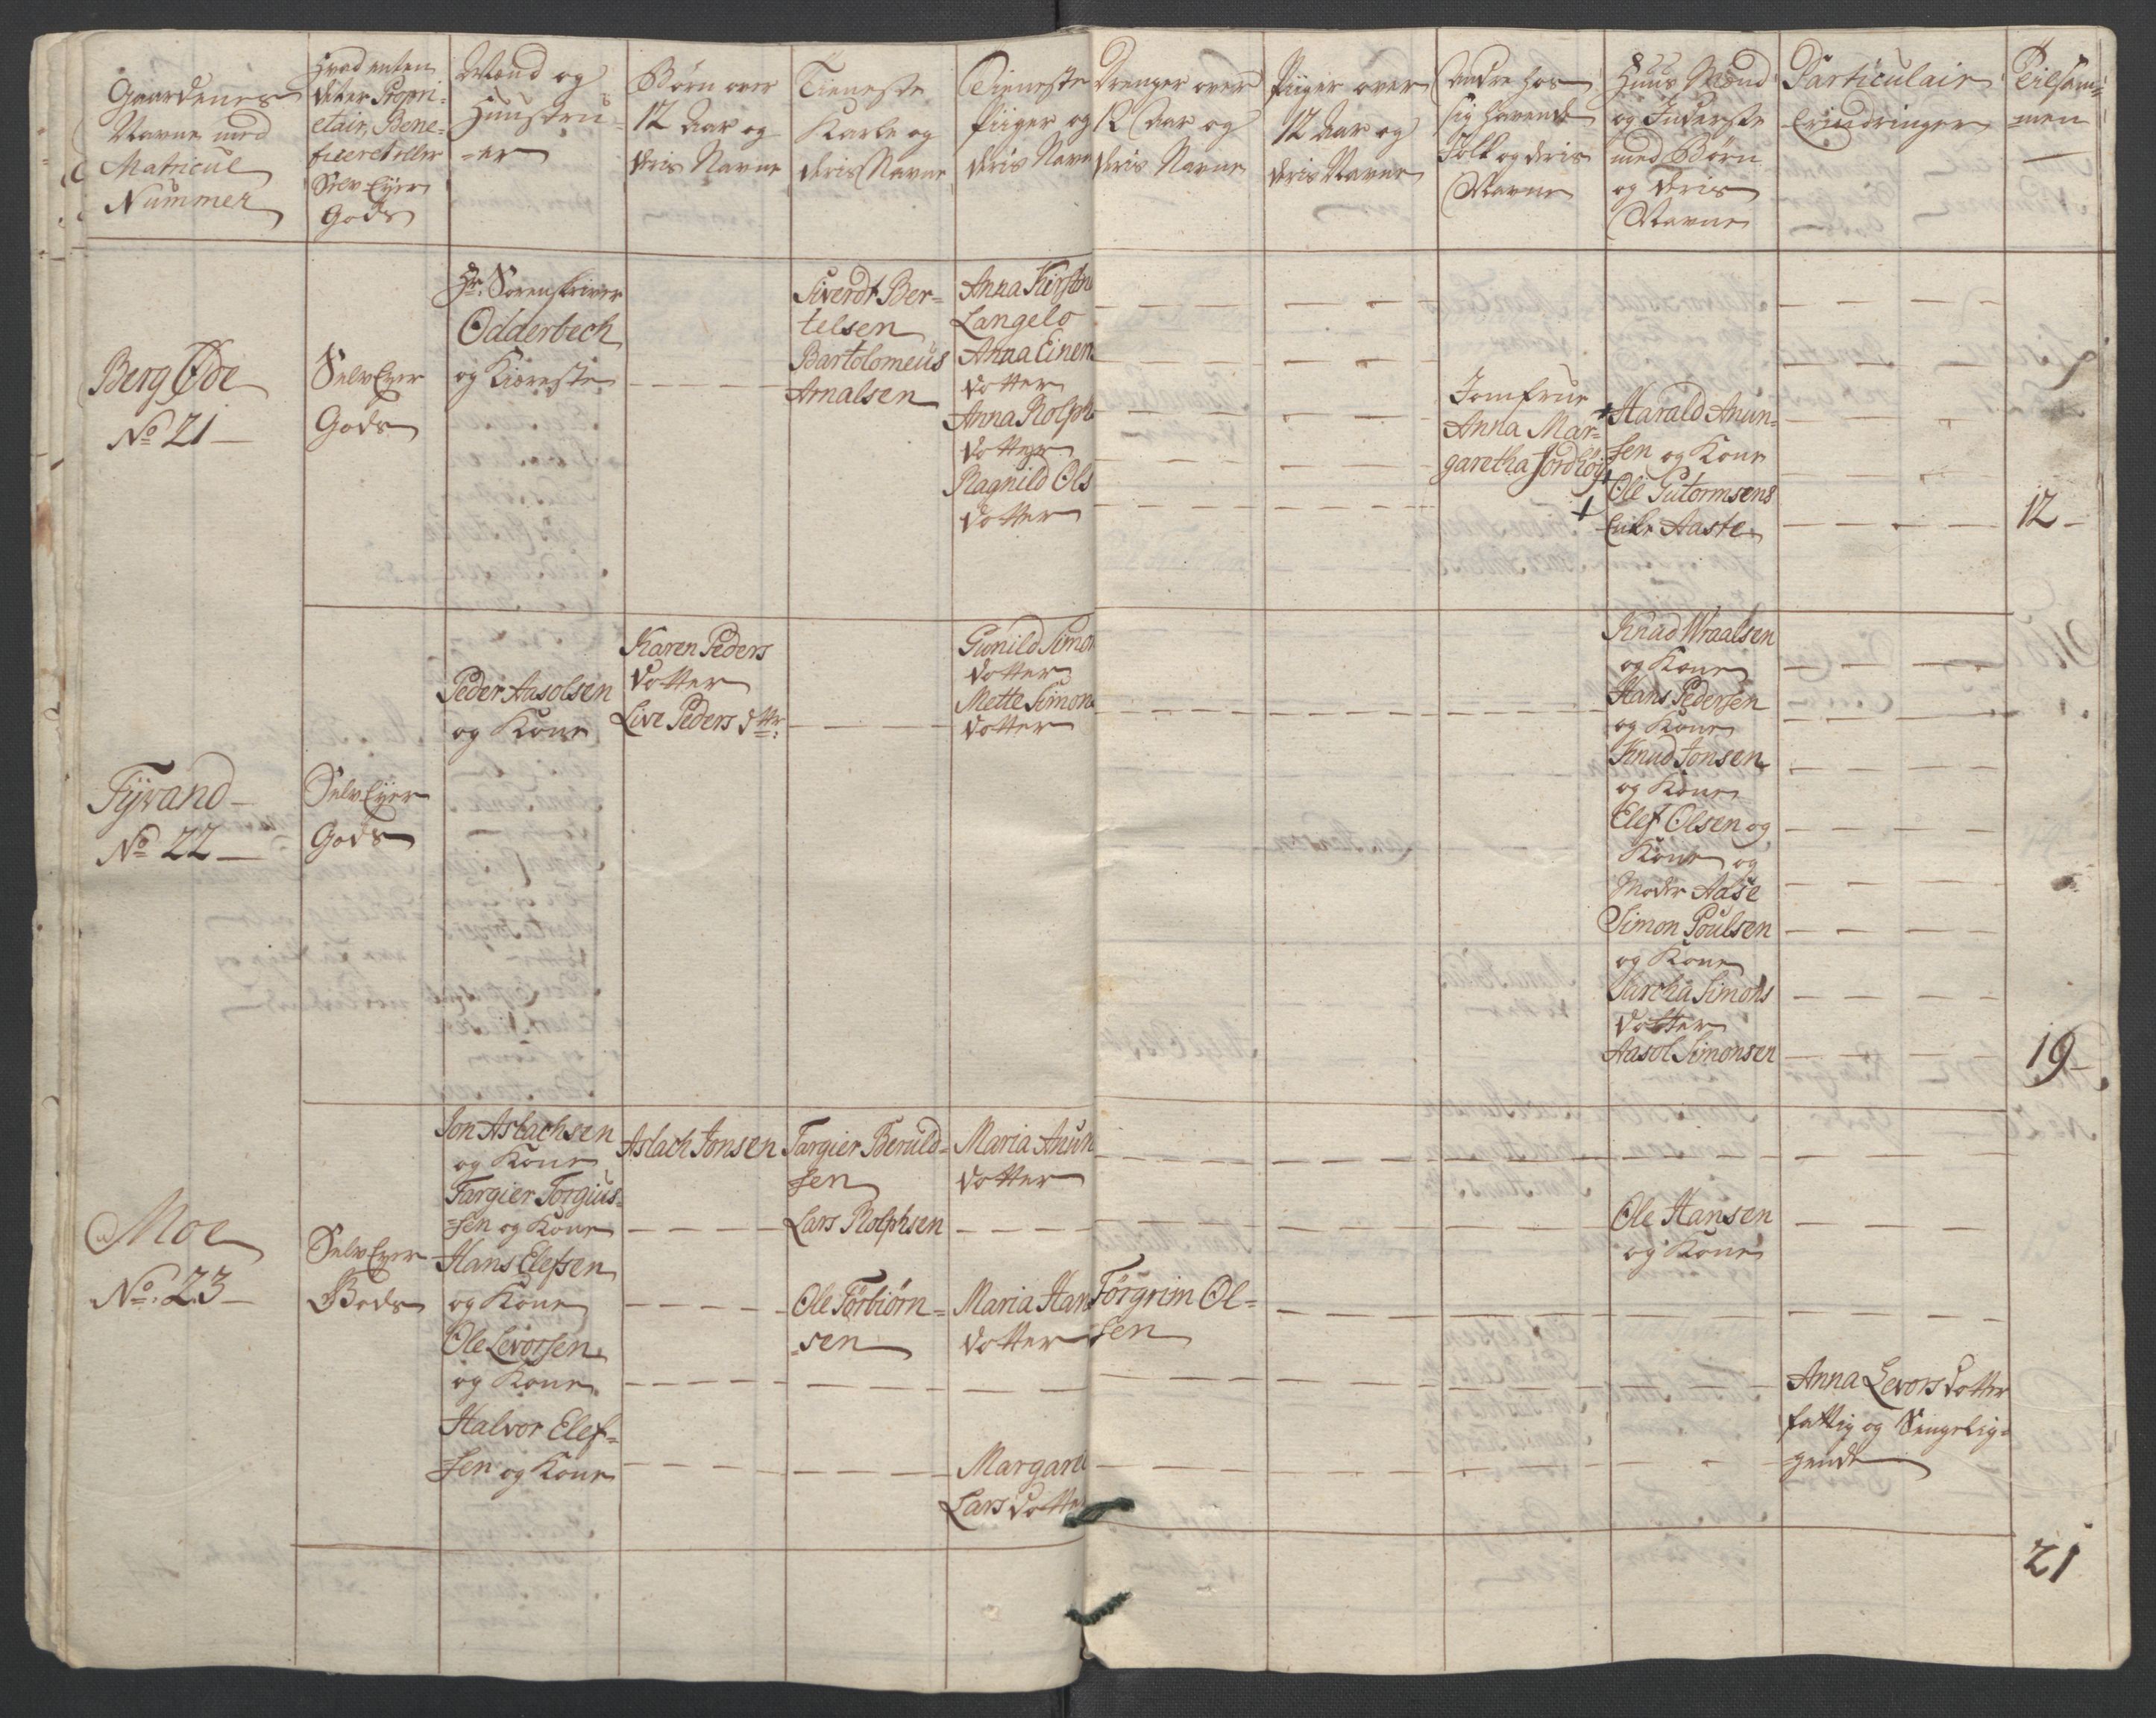 Gaardenes
Navne med
Matricul
Nummer
Hvad enten
det er Propri-
etair, Bene-
ficeret eller
Selv Eyer
Gods
Mænd og
Huustru
-er
Børn over
12 Aar og
deris Navne
Tieneste
Karle og
deris Navne
Tieneste
Piiger og
deris Navn
Drenger over
12 Aar og
deris Navne
Piiger over
12 Aar og
deris Navne
Andre hos
sig havende
Folk og deris
Navne
Huus Mænd
og Inderste
med Børn
og deris
Navne
Particulair
Erindringer
Till sam-
men
Berg Øde
No 21
Selv Eyer
Gods
Hr. Sorenskriver
Odderbech
og Kiereste
Siverdt Ber-
telsen
Bartolomeus
Arnalsen
Anna Kirstn
Langelo
Anna Einer
dotter
Anna Rolph
dotter
Ragnild Ols
dotter
Jomfrue
Anna Mar-
garetha Jordhøy
Harald Anun-
sen og Kone
Ole Gutormsens
Enke Aaste
12
Tyvand
No 22
Selv Eyer
Gods
Peder Aasolsen
og Kone
Karen Peders
dotter
Live Peders dttr:
Gunild Simon
dotter
Mette Simons
dotter
Knud Wraalsen
og Kone
Hans Pedersen
og Kone
Knud Jonsen
og Kone
Elef Olsen og
Kone og
Moder Aase
Simon Poulsen
og Kone
Simons
dotter
Aasol Simonsen
19
Moe
No. 23
Selv Eyer
Gods
Jon Aslachsen
og Kone
Targier Torgius-
-sen og Kone
Hans Elefsen
og Kone
Ole Levorsen
og Kone
Halvor Elef-
sen og Kone
Aslach Jonsen
Targier Beruld-
sen
Lars Rolphsen
Ole Torbiørn-
-sen
Maria Anun
dotter
Maria Han
dotter
Margare
Lars dotter
Torgrim Ol-
sen
Ole Hansen
og Kone
Anna Levors dotter
fattig og Sengelig-
gende
21